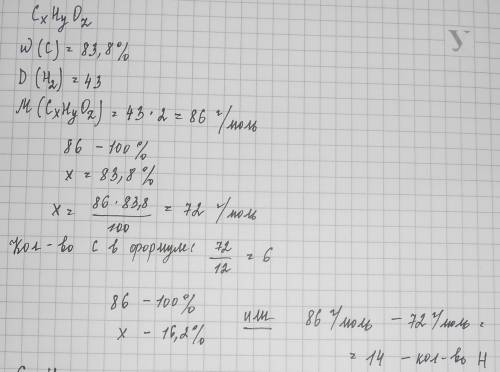 CxHyOz
У
W(C) = 83,8%
D(H₂) = 43
M(CxHyOz) = 43·2 = 86 г/моль
86 - 100%
x = 83,8%
x = 86·83,8 / 100 = 72 г/моль
Кол-во C в формуле: 72/12 = 6
86 - 100%
x - 16,2%
или
86 г/моль - 72 г/моль =
= 14 - кол-во H